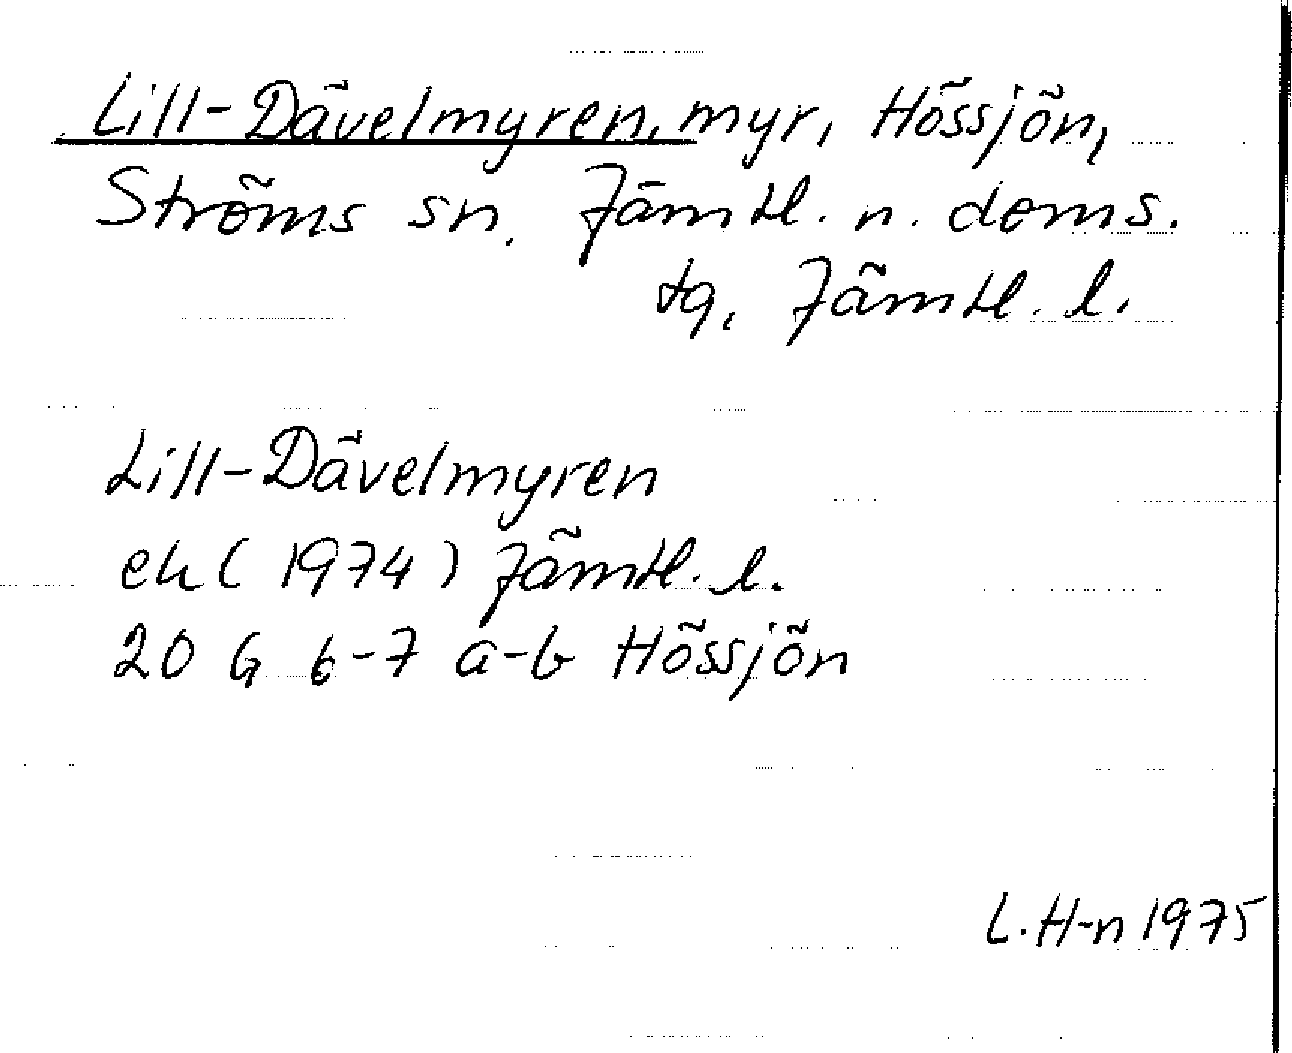 Lill-Dävelmyren, myr, Hössjön,
Ströms sn. Jämtl. n. doms.
tg, Jämtl. l.
Lill-Dävelmyren
ek (1974) Jämtl. l.
20 G 6-7 a-b Hössjön
L. H-n 1975